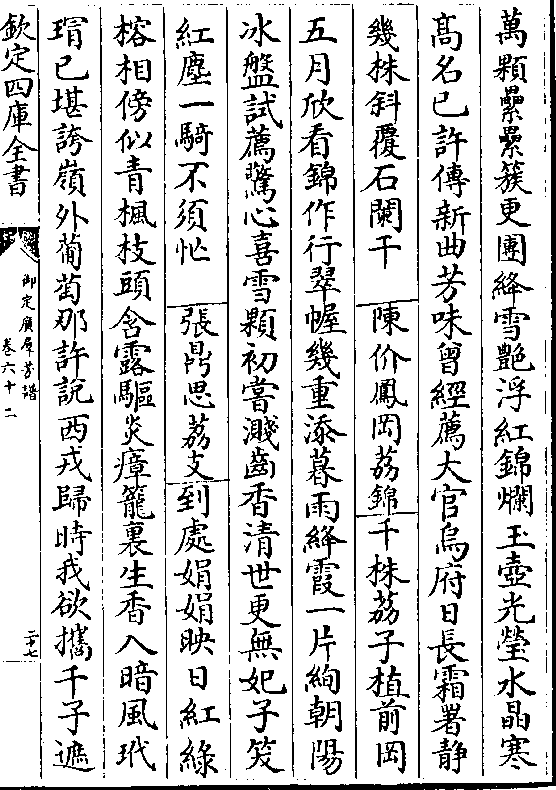 萬顆纍纍簇更團絳雪艶浮紅錦爛玉壺光瑩水晶寒
髙名已許傳新曲芳味曾經薦大官烏府日長霜署静
幾株斜覆石闌干　陳价鳳岡荔錦　千株荔子植前岡
五月欣看錦作行翠幄幾重添暮雨絳霞一片絢朝陽
冰盤試薦驚心喜雪顆初嘗濺齒香清世更無妃子笑
紅塵一騎不須忙　張鼎思荔支　到處娟娟映日紅緑
榕相傍似青楓枝頭含露驅炎瘴籠裏生香入暗風玳
瑁已堪誇嶺外葡萄那許説西戎歸時我欲攜千子遮
欽定四庫全書
御定廣羣芳譜
卷六十二
二十七